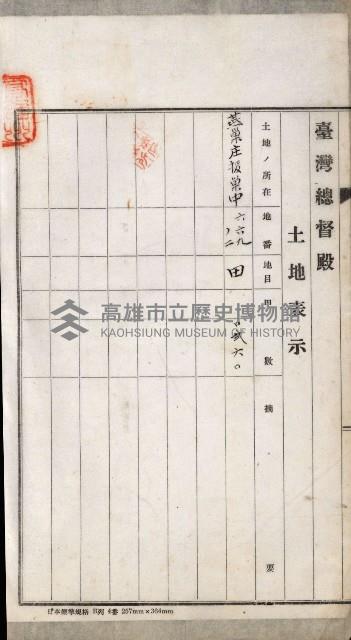 臺灣總督殿
土地表示
土地ノ所在
地番
地目
甲數
摘要
燕巢庄援巢中
六六九ノ二
田
高雄市立歷史博物館
KAOHSIUNG MUSEUM OF HISTORY
日本標準規格 B列 4番 257mm×364mm